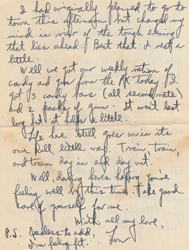 I had originally planned to go to
town this afternoon but changed my
mind in view of the tough evening
that lies ahead. But that I rest a
little.
Well we got our weekly ration of
candy and gum from the PX today. I
got 13 candy bars (all second rate)
and 2 packs of gum. It wont last
long but it helps a little.
Life here still goes on in its
own dull little way. Train, train,
and train day in and day out.
Well, darling here's hoping you're
feeling well by this time. Take good
care of yourself for me.
With all my love,
P.S. Needless to add,
I'm feeling fit.